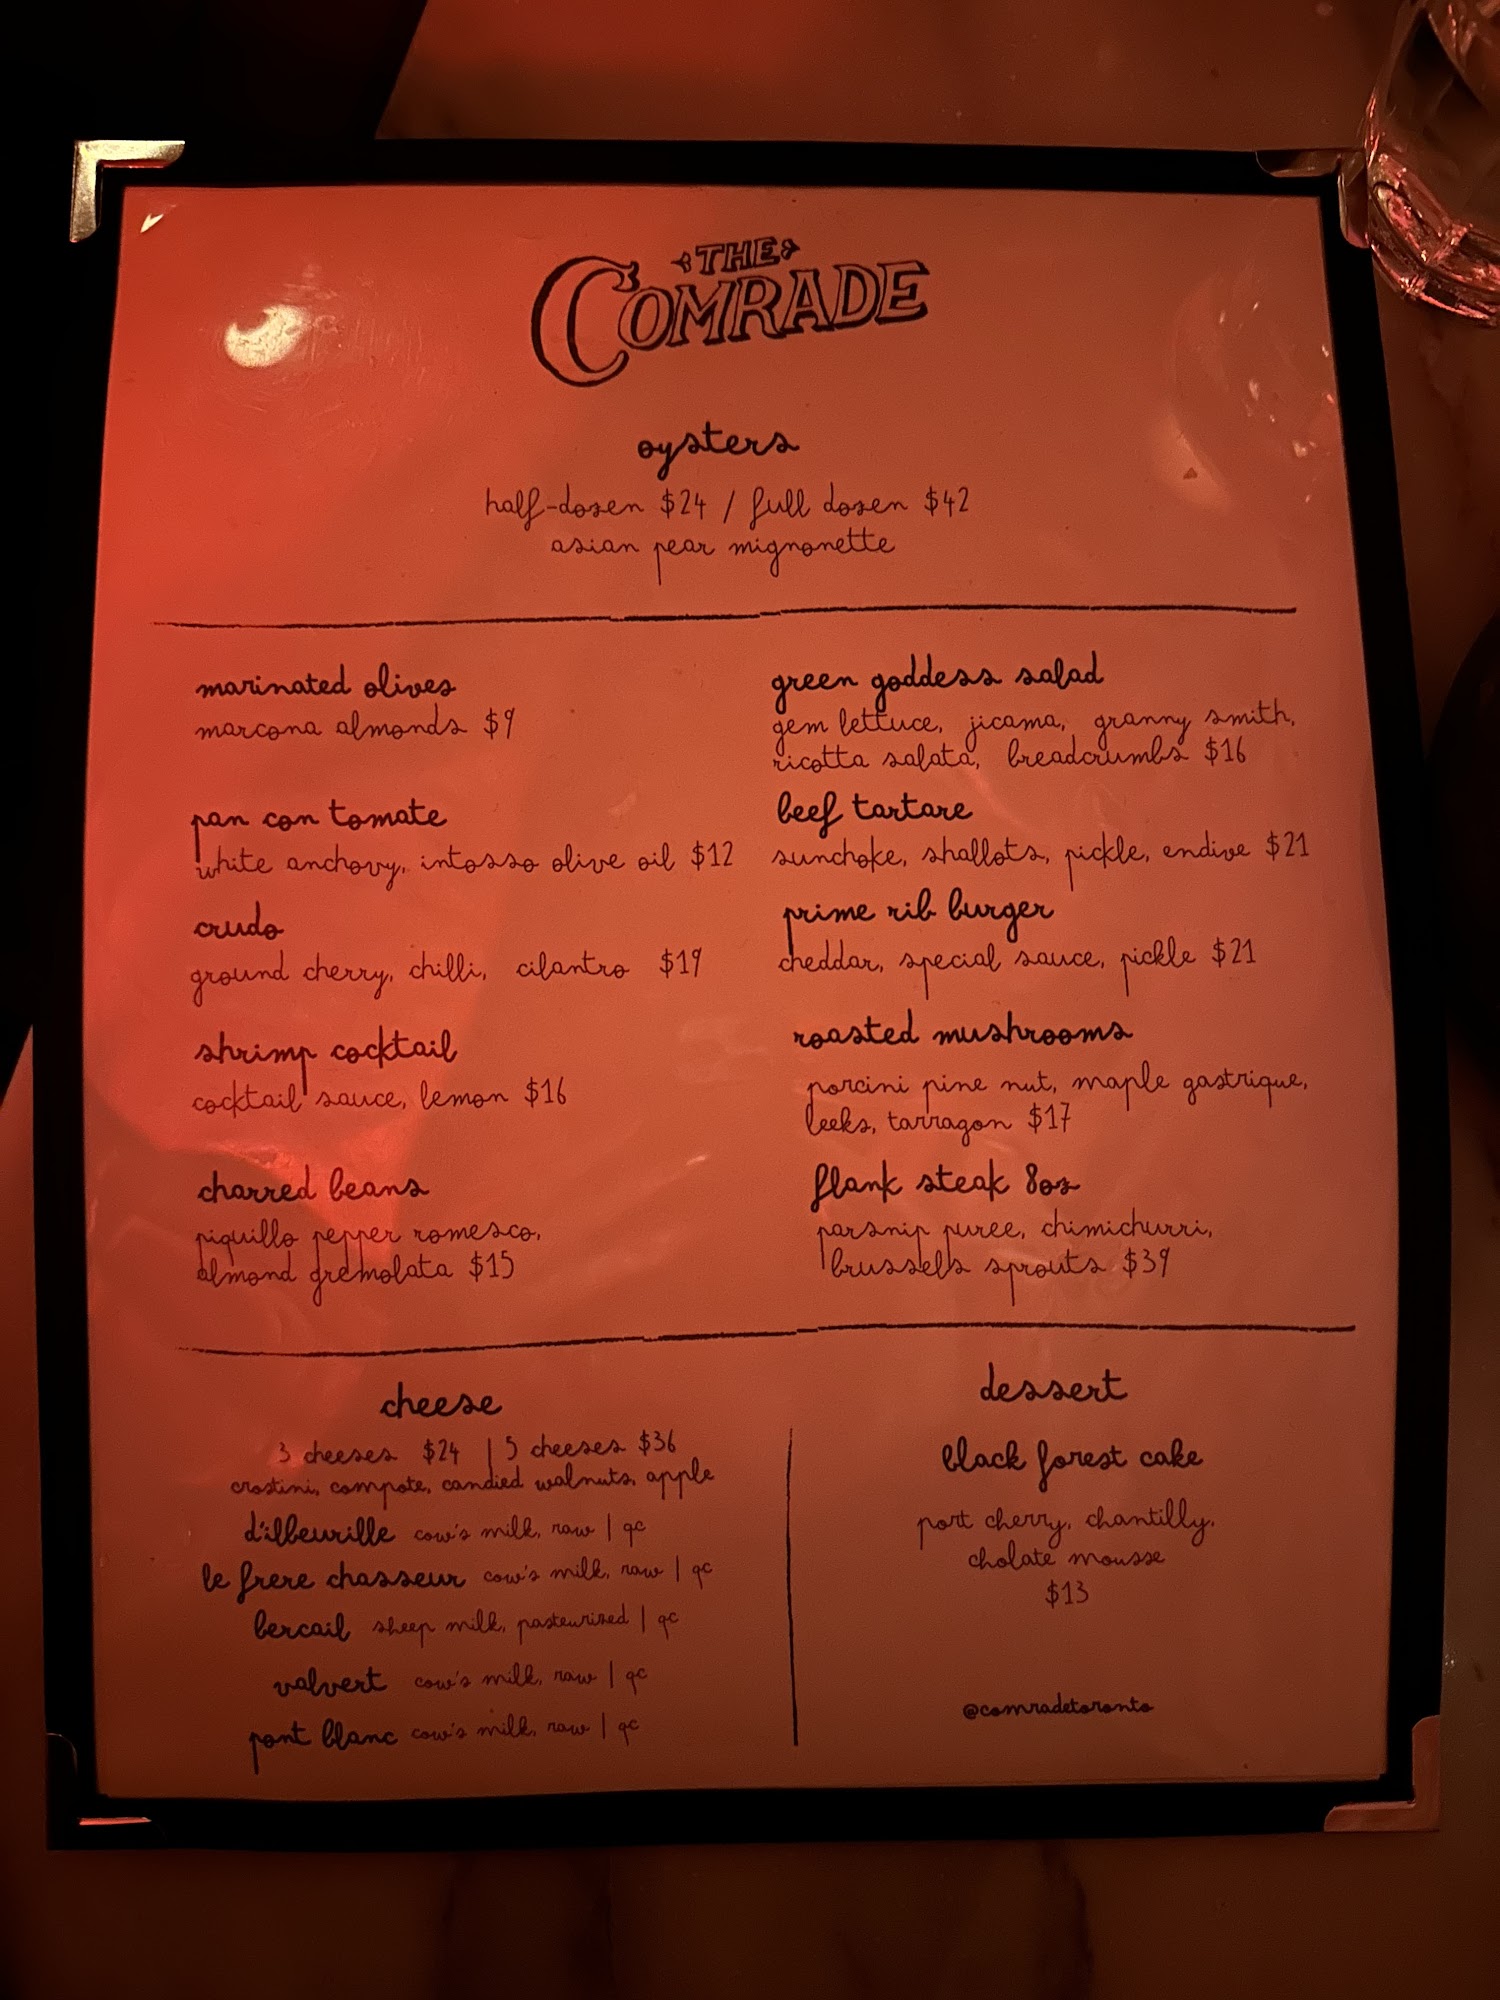 THE
COMRADE
oysters
half-dozen $24 / full dozen $42
asian pear mignonette
marinated olives
marcona almonds $9
pan con tomate
white anchovy, intosso olive oil $12
crudo
ground cherry, chilli, cilantro $19
shrimp cocktail
cocktail sauce, lemon $16
charred beans
piquillo pepper romesco,
almond gremolata $15
green goddess salad
gem lettuce, jicama, granny smith,
ricotta salata, breadcrumbs $16
beef tartare
sunchoke, shallots, pickle, endive $21
prime rib burger
cheddar, special sauce, pickle $21
roasted mushrooms
porcini pine nut, maple gastrique,
leeks, tarragon $17
flank steak 8oz
parsnip puree, chimichurri,
brussels sprouts $39
cheese
3 cheeses $24 | 5 cheeses $36
crostini, compote, candied walnuts, apple
d'ilbeurville cow's milk, raw | qc
le frere chasseur cow's milk, raw | qc
bercail sheep milk, pasteurized | qc
valvert cow's milk, raw | qc
pont blanc cow's milk, raw | qc
dessert
black forest cake
port cherry, chantilly,
cholate mousse
$13
@comradetoronto